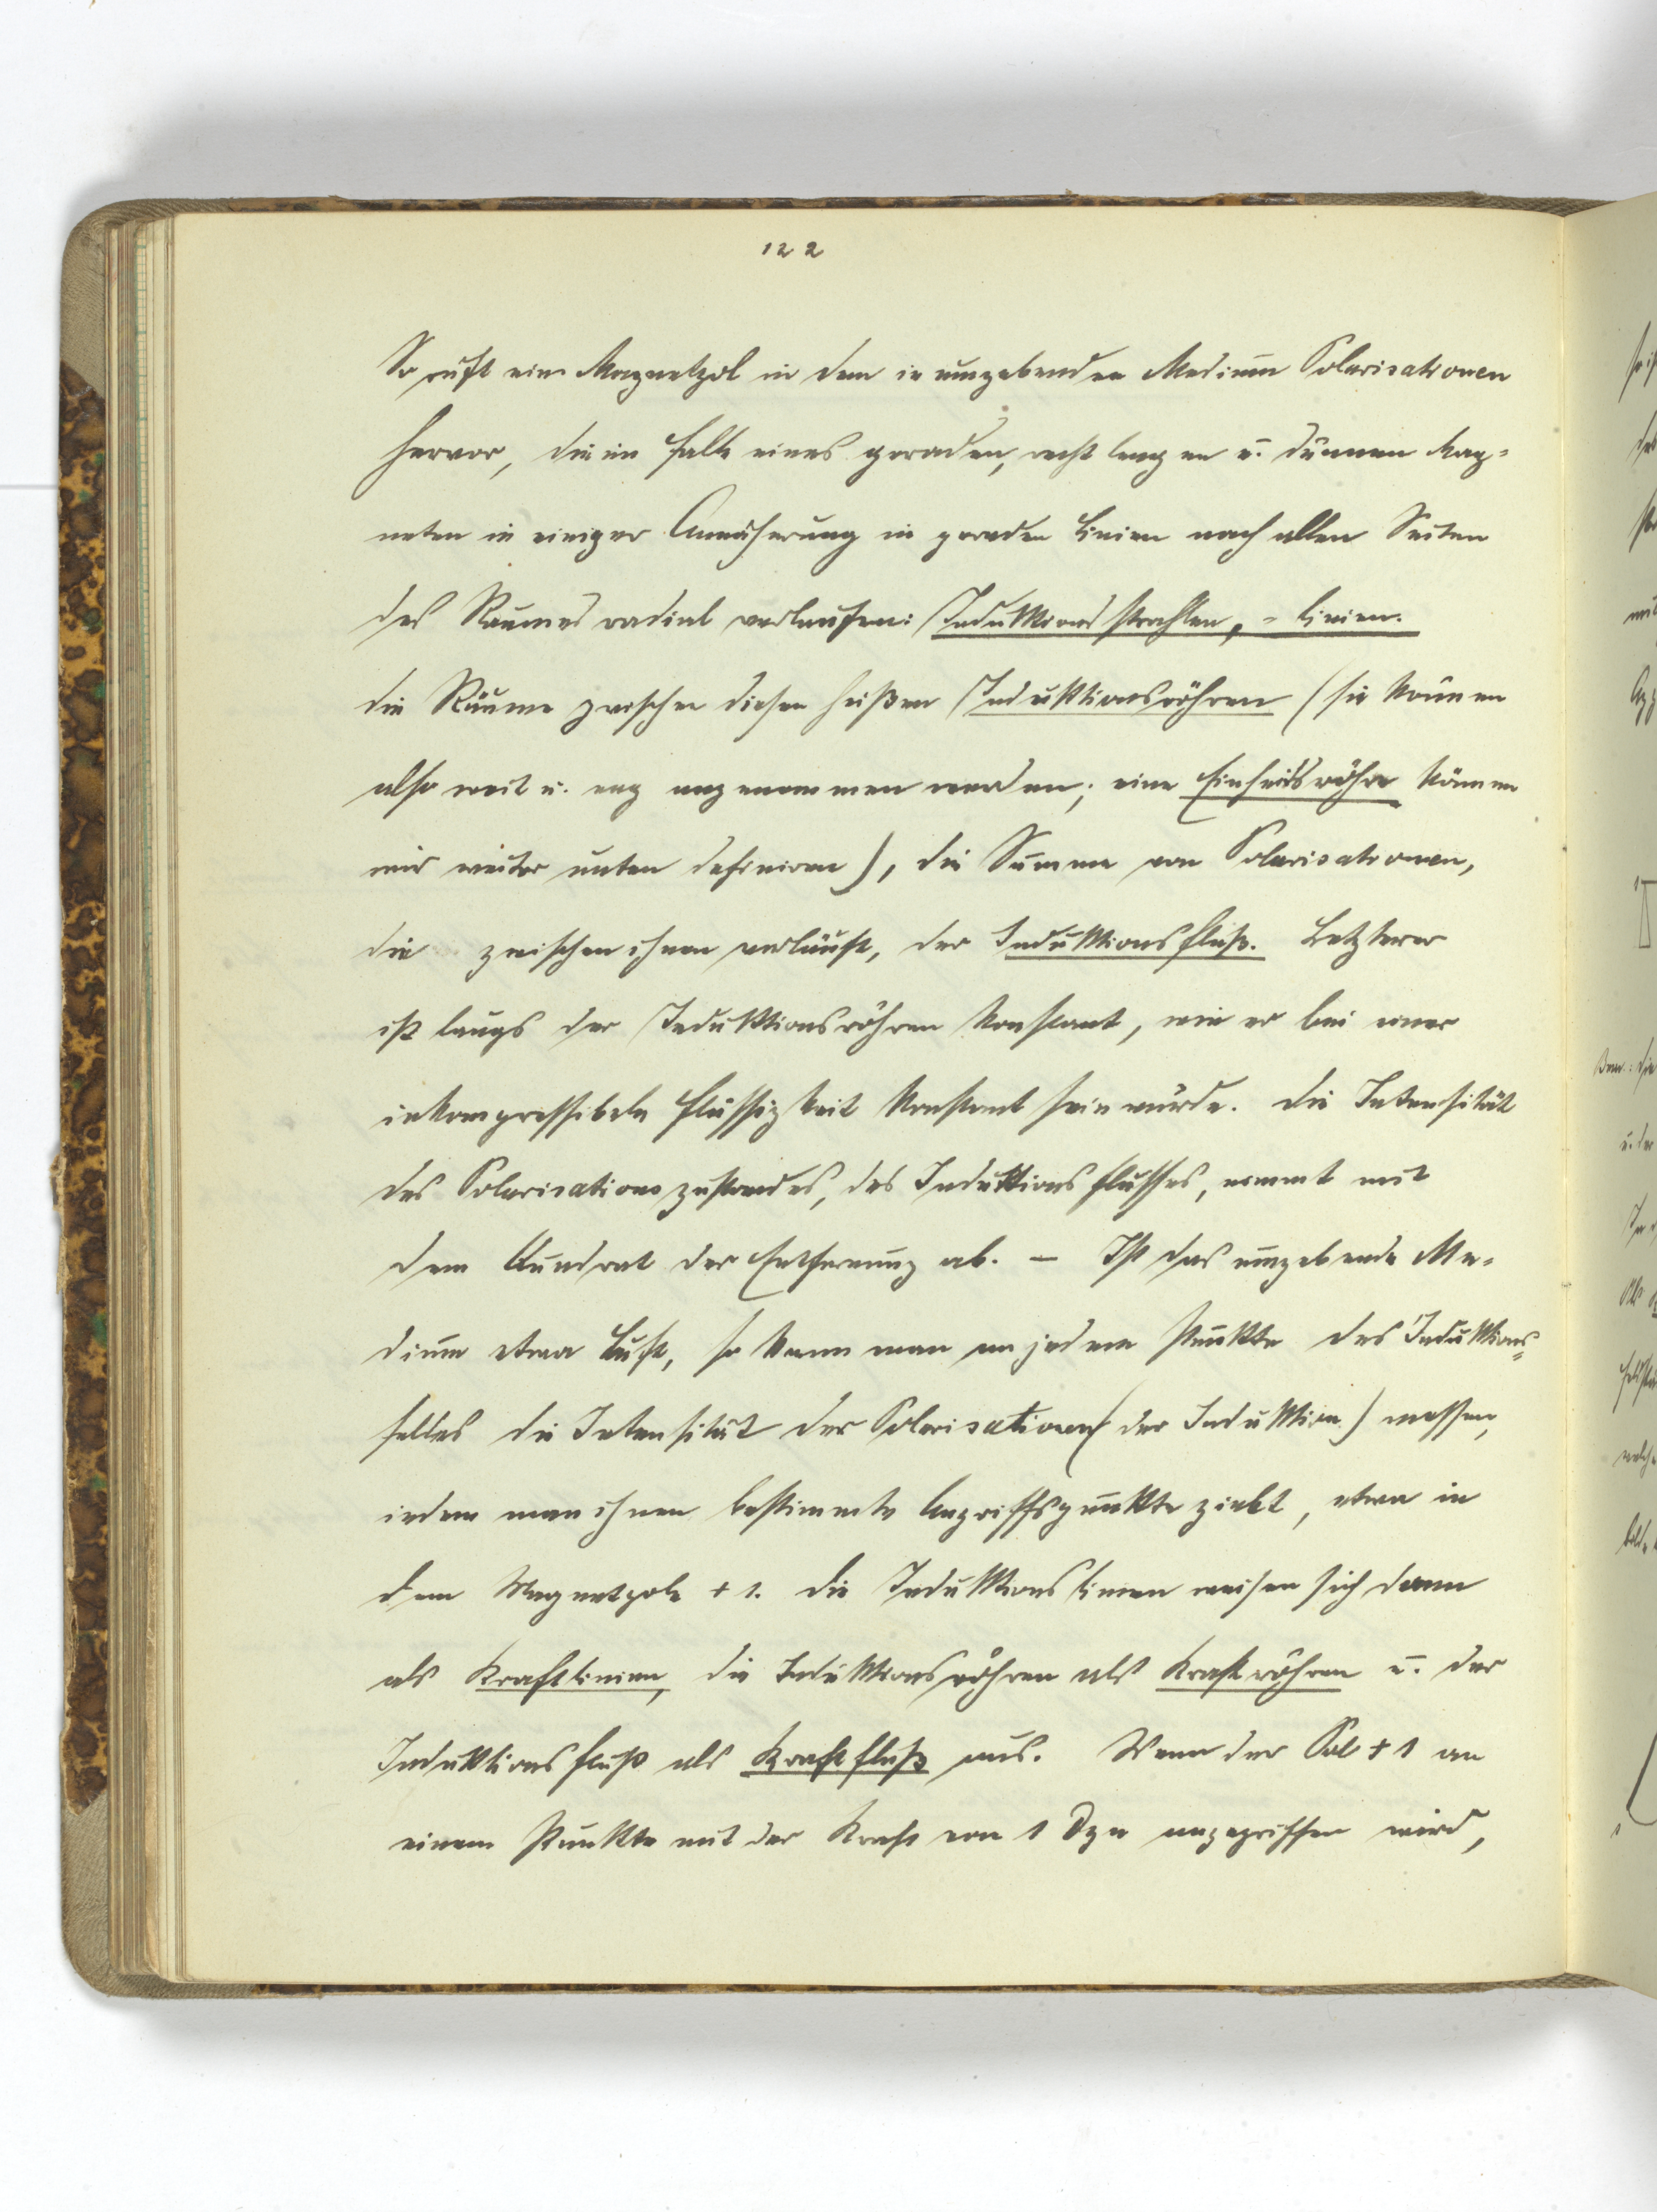 122
So ruft ein Magnetpol in dem ie umgebenden Medium Polarisationen
hervor, die im Falle eines geraden, recht langen u. dünnen Mag-
neten in einiger Annäherung in geraden Linien nach allen Seiten
des Raumes radial verlaufen: Induktionsstrahlen, -linien.
Die Räume zwischen diesen heißen Induktionsröhren (sie können
also weit u. eng angenommen werden; eine Einheitsröhre können
wir weiter unten definiren), die Summe von Polarisationen,
die zwischen ihnen verläuft, der Induktionsfluß. Letzterer
ist längs der Induktionsröhren konstant, wie er bei einer
inkompressibeln Flüssigkeit konstant sein würde. Die Intensität
des Polarisationszustandes, des Induktionsflusses, nimmt mit
dem Quadrat der Entfernung ab. – Ist das umgebende Me-
dium etwa Luft, so kann man an jedem Punkte des Induktions-
feldes die Intensität der Polarisationen (der Induktion) messen,
indem man ihnen bestimmte Angriffspunkte giebt, etwa in
dem Magnetpole + 1. Die Induktionslinien weisen sich dann
als Kraftlinien, die Induktionsröhren als Kraftröhren u. der
Induktionsfluß als Kraftfluß aus. Wenn der Pol + 1 an
einem Punkte mit der Kraft von 1 Dyn angegriffen wird,